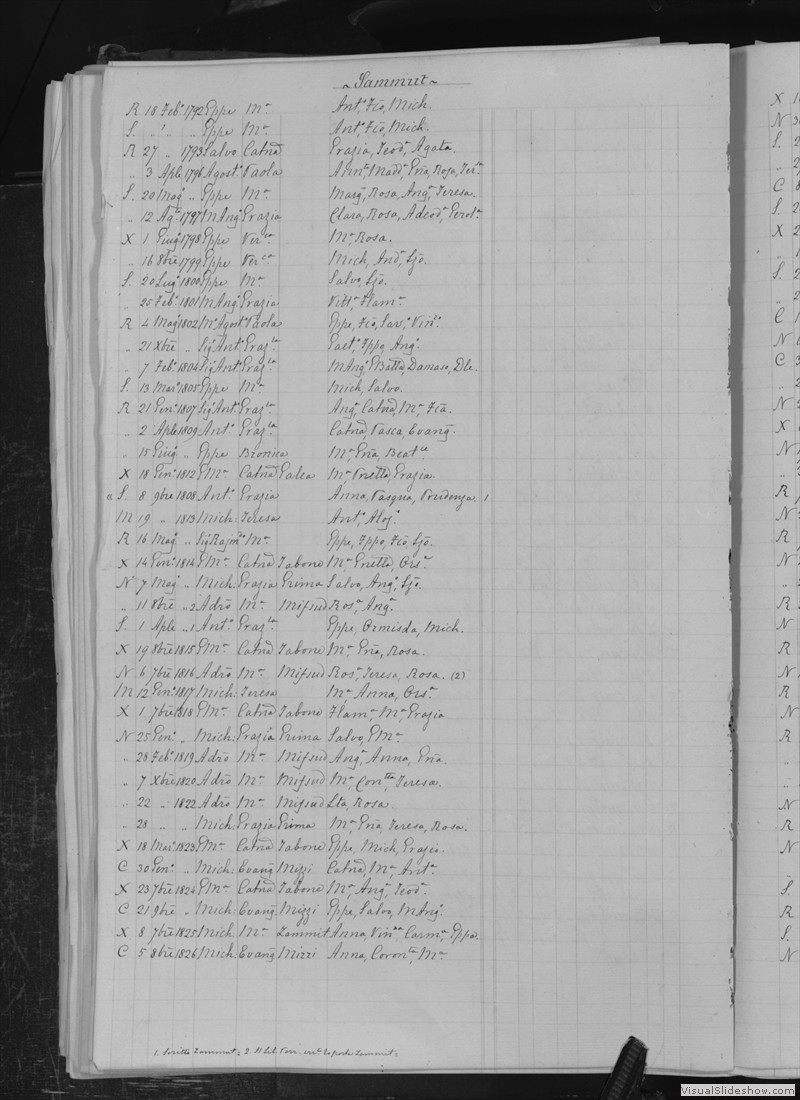 ~ Sammut ~
R 18 Feb° 1792 Gppe Mª Ant° Fco, Mich.
S. " " " Gppe Mª Ant° Fco, Mich.
R 27 " 1793 Salvo Catnª Grazia, Teodª, Agata.
" 3 Aple 1796 Agost° Paola Rosa,
S. 20 Mag° " Gppe Mª Margª, Rosa, Angª, Teresa.
" 12 Ag° 1797 M Ang° Grazia Clara, Rosa, Adeodª,
X 1 Giug° 1798 Gppe Verca Mª Rosa.
" 16 8bre 1799 Gppe Verca Mich, Andª, Gio.
S. 20 Lug° 1800 Gppe Mª Salvo, Gio.
" 25 Feb° 1801 M Ang° Grazia Vittª, Flamª
R 4 Mag° 1802 Mº Agost° Paola Gppe, Fco, Savº, Vinº.
" 21 Xbre " Sigr Ant° Grazla Gaetº, Fppo, Ang°
" 7 Feb° 1804 Sigr Ant° Grazla M Ang° Gbatta, Damaso, Dle.
S. 13 Mar° 1805 Gppe Mª Mich, Salvo.
R 21 Gen° 1807 Sigr Ant° Grazla Angª, Catnª, Mª, Fca.
" 2 Aple 1809 Ant° Grazla Catnª, Pasca, Evangª.
" 15 Giug° " Gppe Bronica Mª Gnª, Beatce
X 18 Gen° 1812 GMª Catnª Galea Mª Pnetta, Grazia.
a S 8 9bre 1808 Ant° Grazia Anna, Pasqua, Prudenza 1
M 19 " 1813 Mich: Teresa Ant°, Aloj°
R 16 Mag° " Sigr Rajmdº Mª Gppe, Fppo, Fco, Gio.
X 14 Gen° 1814 GMª Catnª Tabone Mª Gnetta, Orsª
N 7 Mag° " Mich: Grazia Grima Salvo, Ang°, Gio.
" 11 8bre " 2 Adro Mª Mifsud Rosª, Angª
S. 1 Aple " 1 Ant° Grazla Gppe, Ormisda, Mich.
X 19 8bre 1815 GMª Catnª Tabone Mª Gna, Rosa.
N 6 7bre 1816 Adro Mª Mifsud Rosª, Teresa, Rosa. (2)
M 12 Gen° 1817 Mich: Teresa Mª Anna, Orsª
X 1 7bre 1818 GMª Catnª Tabone Flamª, Mª, Grazia
N 25 Gen° " Mich: Grazia Grima Salvo, GMª
" 28 Feb° 1819 Adro Mª Mifsud Angª, Anna, Gna.
" 7 Xbre 1820 Adro Mª Mifsud Mª, Teresa.
" 22 " 1822 Adro Mª Mifsud Lta, Rosa.
" 28 " " Mich: Grazia Grima Mª Gna, Teresa, Rosa.
X 18 Mar° 1823 GMª Catnª Tabone Gppe, Mich, Grazia.
C 30 Gen° " Mich: Evangª Mizzi Catnª, Mª, Antª
X 23 7bre 1824 GMª Catnª Tabone Mª, Angª, Teodª
C 21 9bre " Mich: Evangª Mizzi Gppe, Salvo, M Ang°
X 8 7bre 1825 Mich: Mª Zammit Anna, Vinza, Carmª, Gppa.
C 5 8bre 1826 Mich: Evangª Mizzi Anna, Coronta, Mª
1. Scritto Zammut: 2. Il Lib. Parr. Zammit:
X
N
S.
C
S.
X
S.
C
N
C
N
X
N
R
N
R
N
R
N
R
N
R
N
R
N
R
N
S.
R
S.
N
VisualSlideshow.com